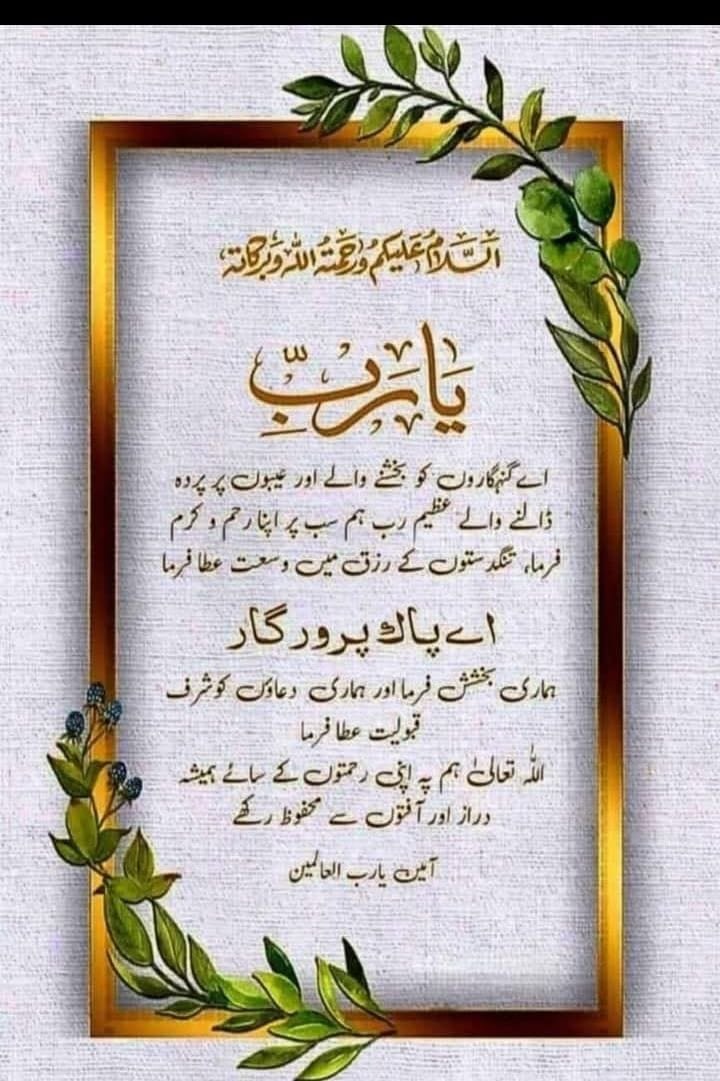 اَلسَّلَامُ عَلَيْكُمْ وَرَحْمَتُهُ اللّٰهِ وَبَرَكَاتُهُ
يَا رَبِّ
اے گنہگاروں کو بخشنے والے اور عیبوں پر پردہ
ڈالنے والے عظیم رب ہم سب پر اپنا رحم و کرم
فرما، تنگدستوں کے رزق میں وسعت عطا فرما
اے پاک پرورگار
ہماری بخشش فرما اور ہماری دعاؤں کو شرف
قبولیت عطا فرما
اللہ تعالیٰ ہم پہ اپنی رحمتوں کے سائے ہمیشہ
دراز اور آفتوں سے محفوظ رکھے
آمین یارب العالمین